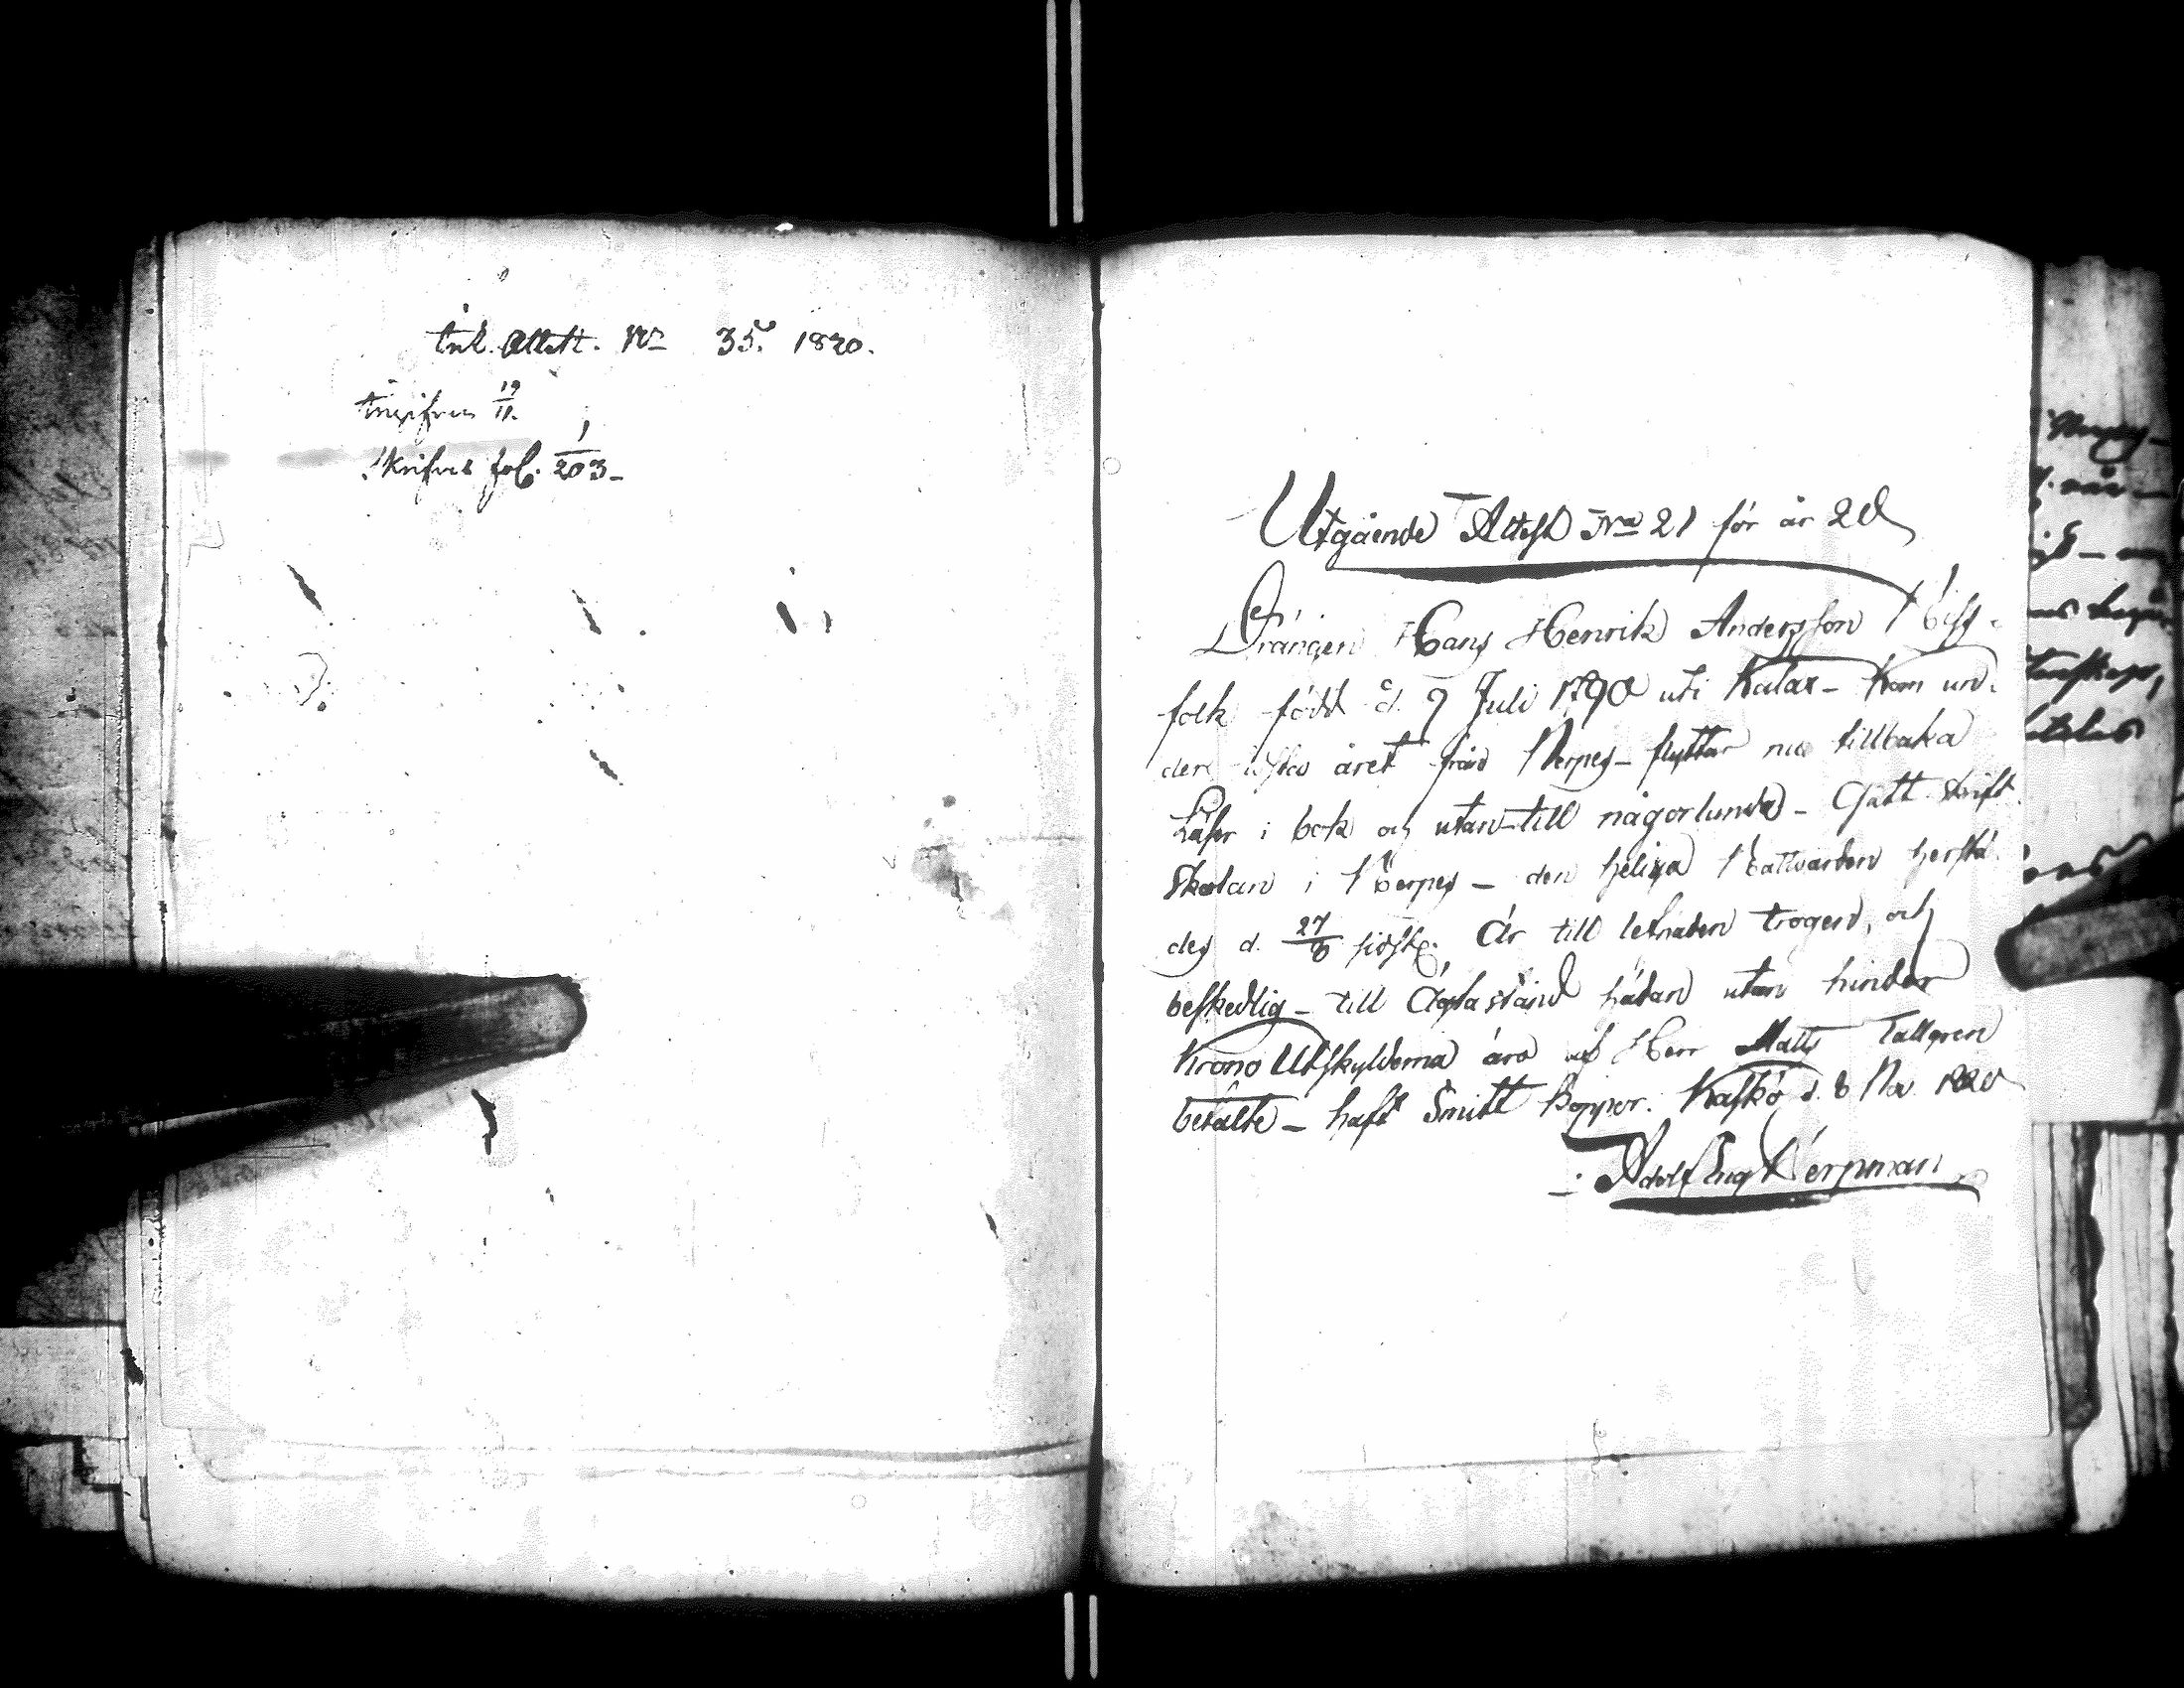 Ink. Attest. No 35. 1820.
Ingifven 19/11.
Skrifves fol. 1/203 -
Utgående Attest No 21 för år 20
Drängen Hans Henrik Andersson
folk född d. 9 Juli 1790 uti Kalax - Kom un-
der sista året från Nerpes - flyttar nu tillbaka
Läser i bok och utan-till någorlunda - Gått skrift
skolan i Nerpes - den heliga Nattvarden
des d. 27/8 sidst. Är till lefnaden trogen, och
beskedlig - till Ägtastånd hädan utan hinder
Krono Utskylderna äro af Herr Matts Tallgren
betalte - haft Smitt Koppor. Kaskö d. 8 Nov 1820
Adolf Engl. Nerpman